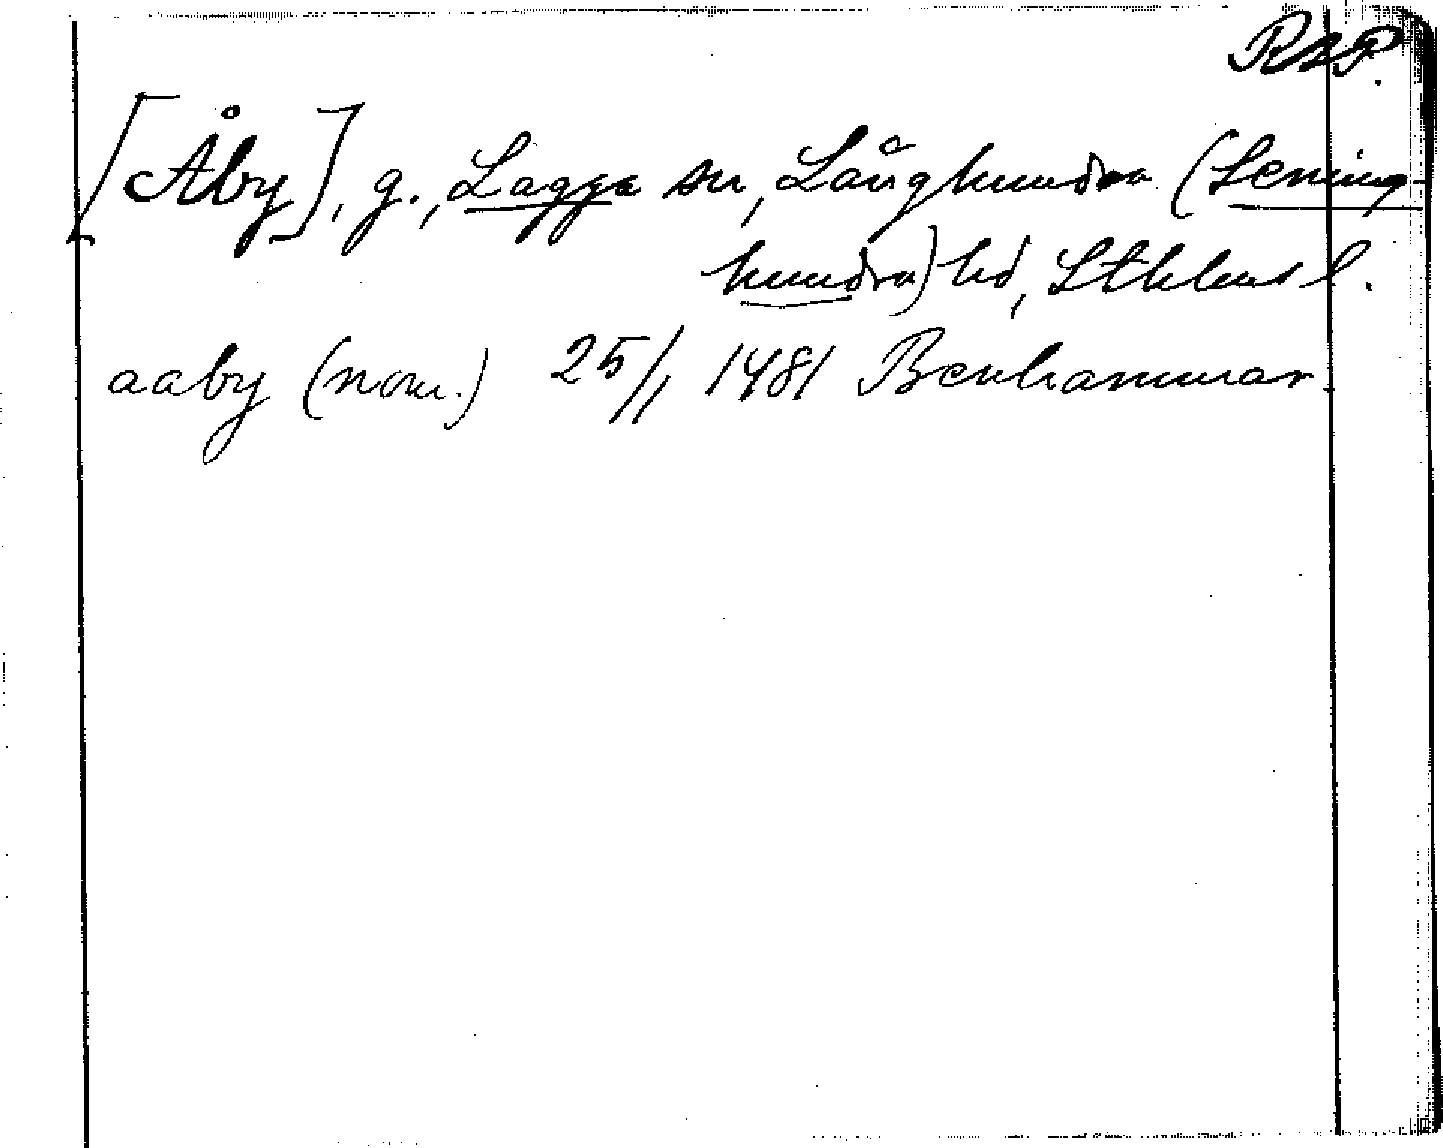 RAP.
[Åby], g., Lagga sn, Långhundra (Seming-
hundra) hd, Sthlms l.
aaby (nom.) 25/1 1481 Benhammar.